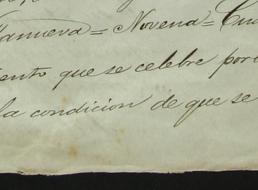 Novena = 
ento que se celebre por
la condicion de que se